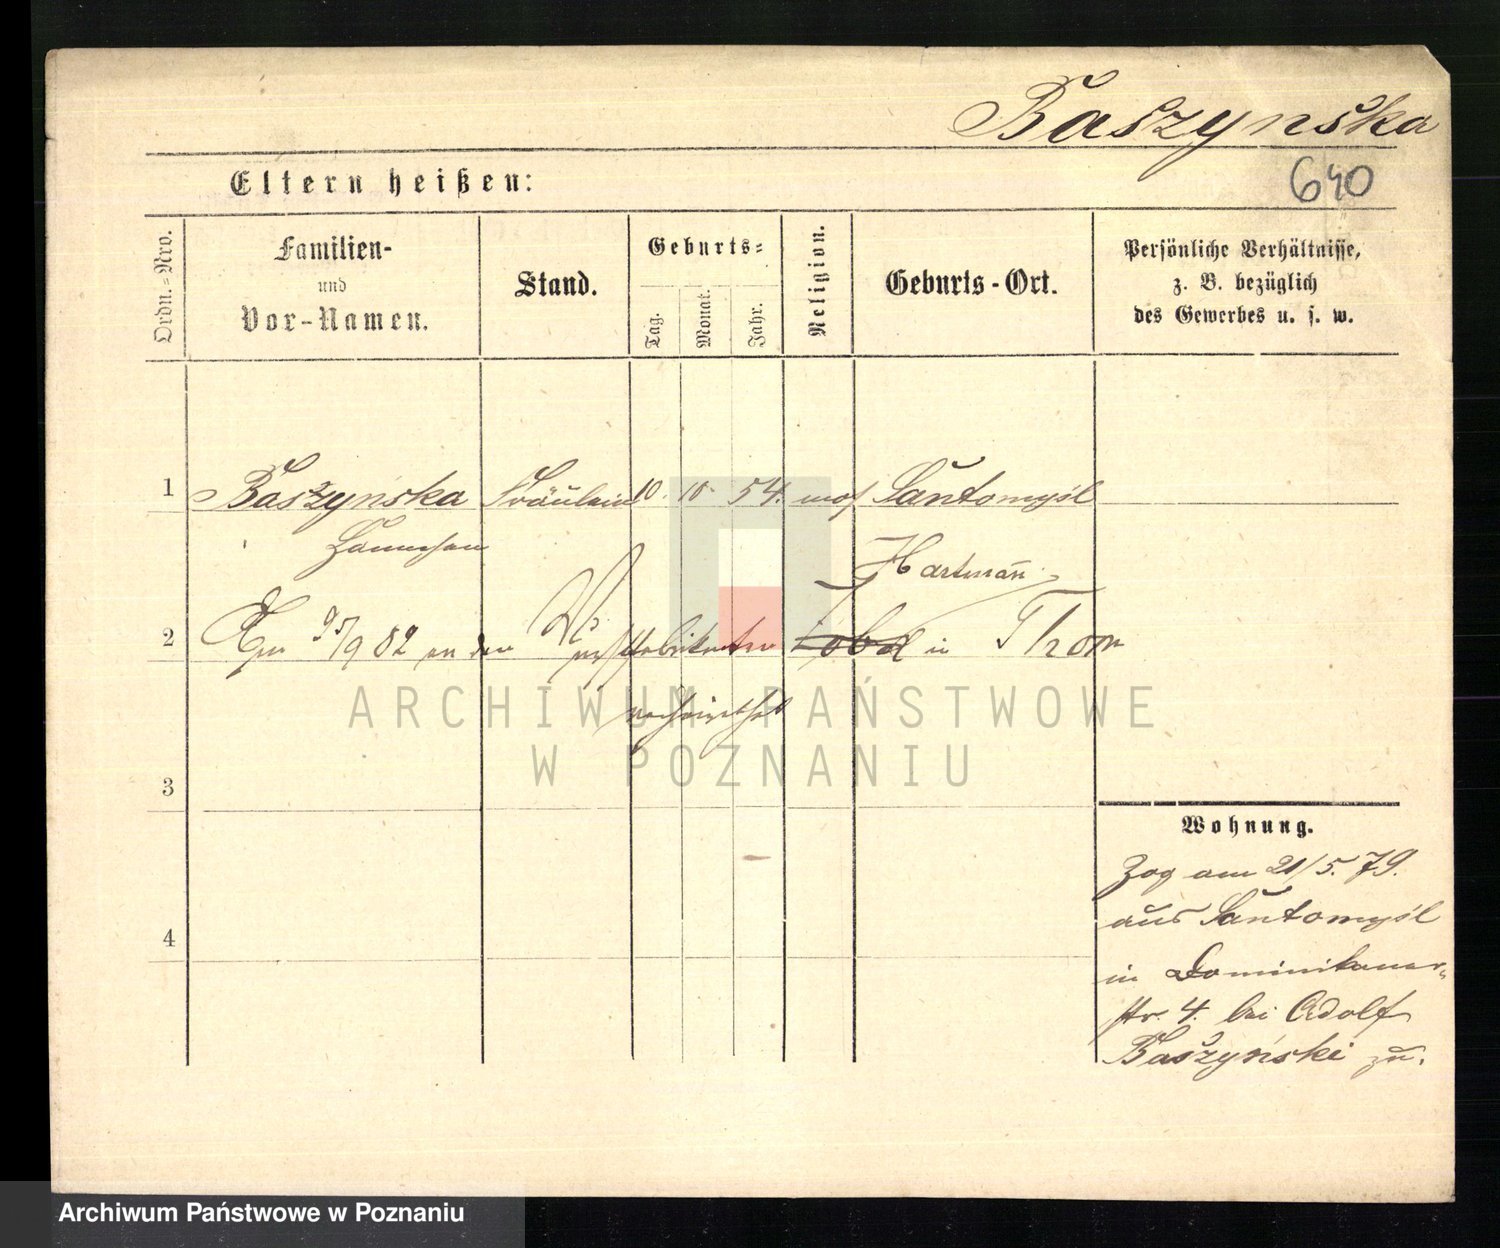 Baszynska
640
Eltern heißen:
Ordn.-Nro.
Familien-
und
Vor-Namen.
Stand.
Geburts-
Tag.
Monat.
Jahr.
Religion.
Geburts-Ort.
Persönliche Verhältnisse,
z. B. bezüglich
des Gewerbes u. s. w.
1 Baszyńska Fräulein 10. 10. 54. mos Santomyśl
Hannchen
Hartmañ
2 Am /9 82 an den Wurstfabrikanten in Thorn
verheirathet
ARCHIWUM PAŃSTWOWE
W POZNANIU
3
4
Wohnung.
Zog am 21/5. 79.
aus Santomyśl
in Dominikaner-
str. 4. bei Adolf
Baszyński zu.
Archiwum Państwowe w Poznaniu